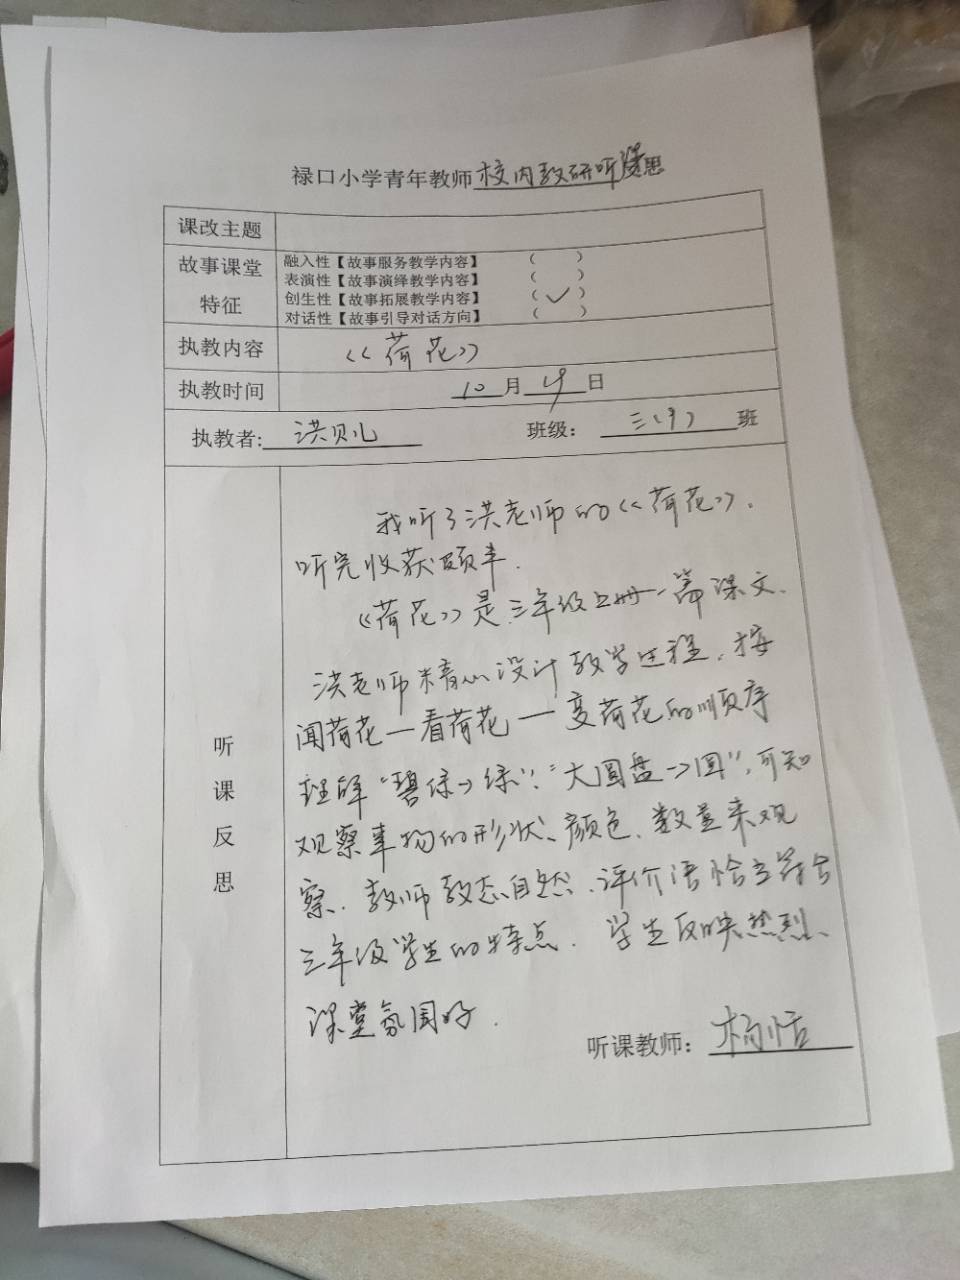 禄口小学青年教师校内教研听课反思
课改主题
故事课堂
特征
融入性【故事服务教学内容】 ( )
表演性【故事演绎教学内容】 ( )
创生性【故事拓展教学内容】 (✓)
对话性【故事引导对话方向】 ( )
执教内容 《荷花》
执教时间 10月19日
执教者: 洪贝儿 班级: 三(9)班
听课反思
我听了洪老师的《荷花》.
听完收获颇丰.
《荷花》是三年级上册一篇课文.
洪老师精心设计教学过程.按
闻荷花—看荷花—变荷花的顺序
理解“碧绿→绿”、“大圆盘→圆”,可知
观察事物的形状、颜色、数量来观
察.教师教态自然.评价语恰当符合
三年级学生的特点. 学生反映热烈、
课堂氛围好.
听课教师: 杨恬